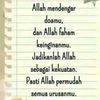 Allah mendengar
doamu,
dan Allah faham
keinginanmu.
Jadikanlah Allah
sebagai kekuatan.
Pasti Allah permudah
semua urusanmu.